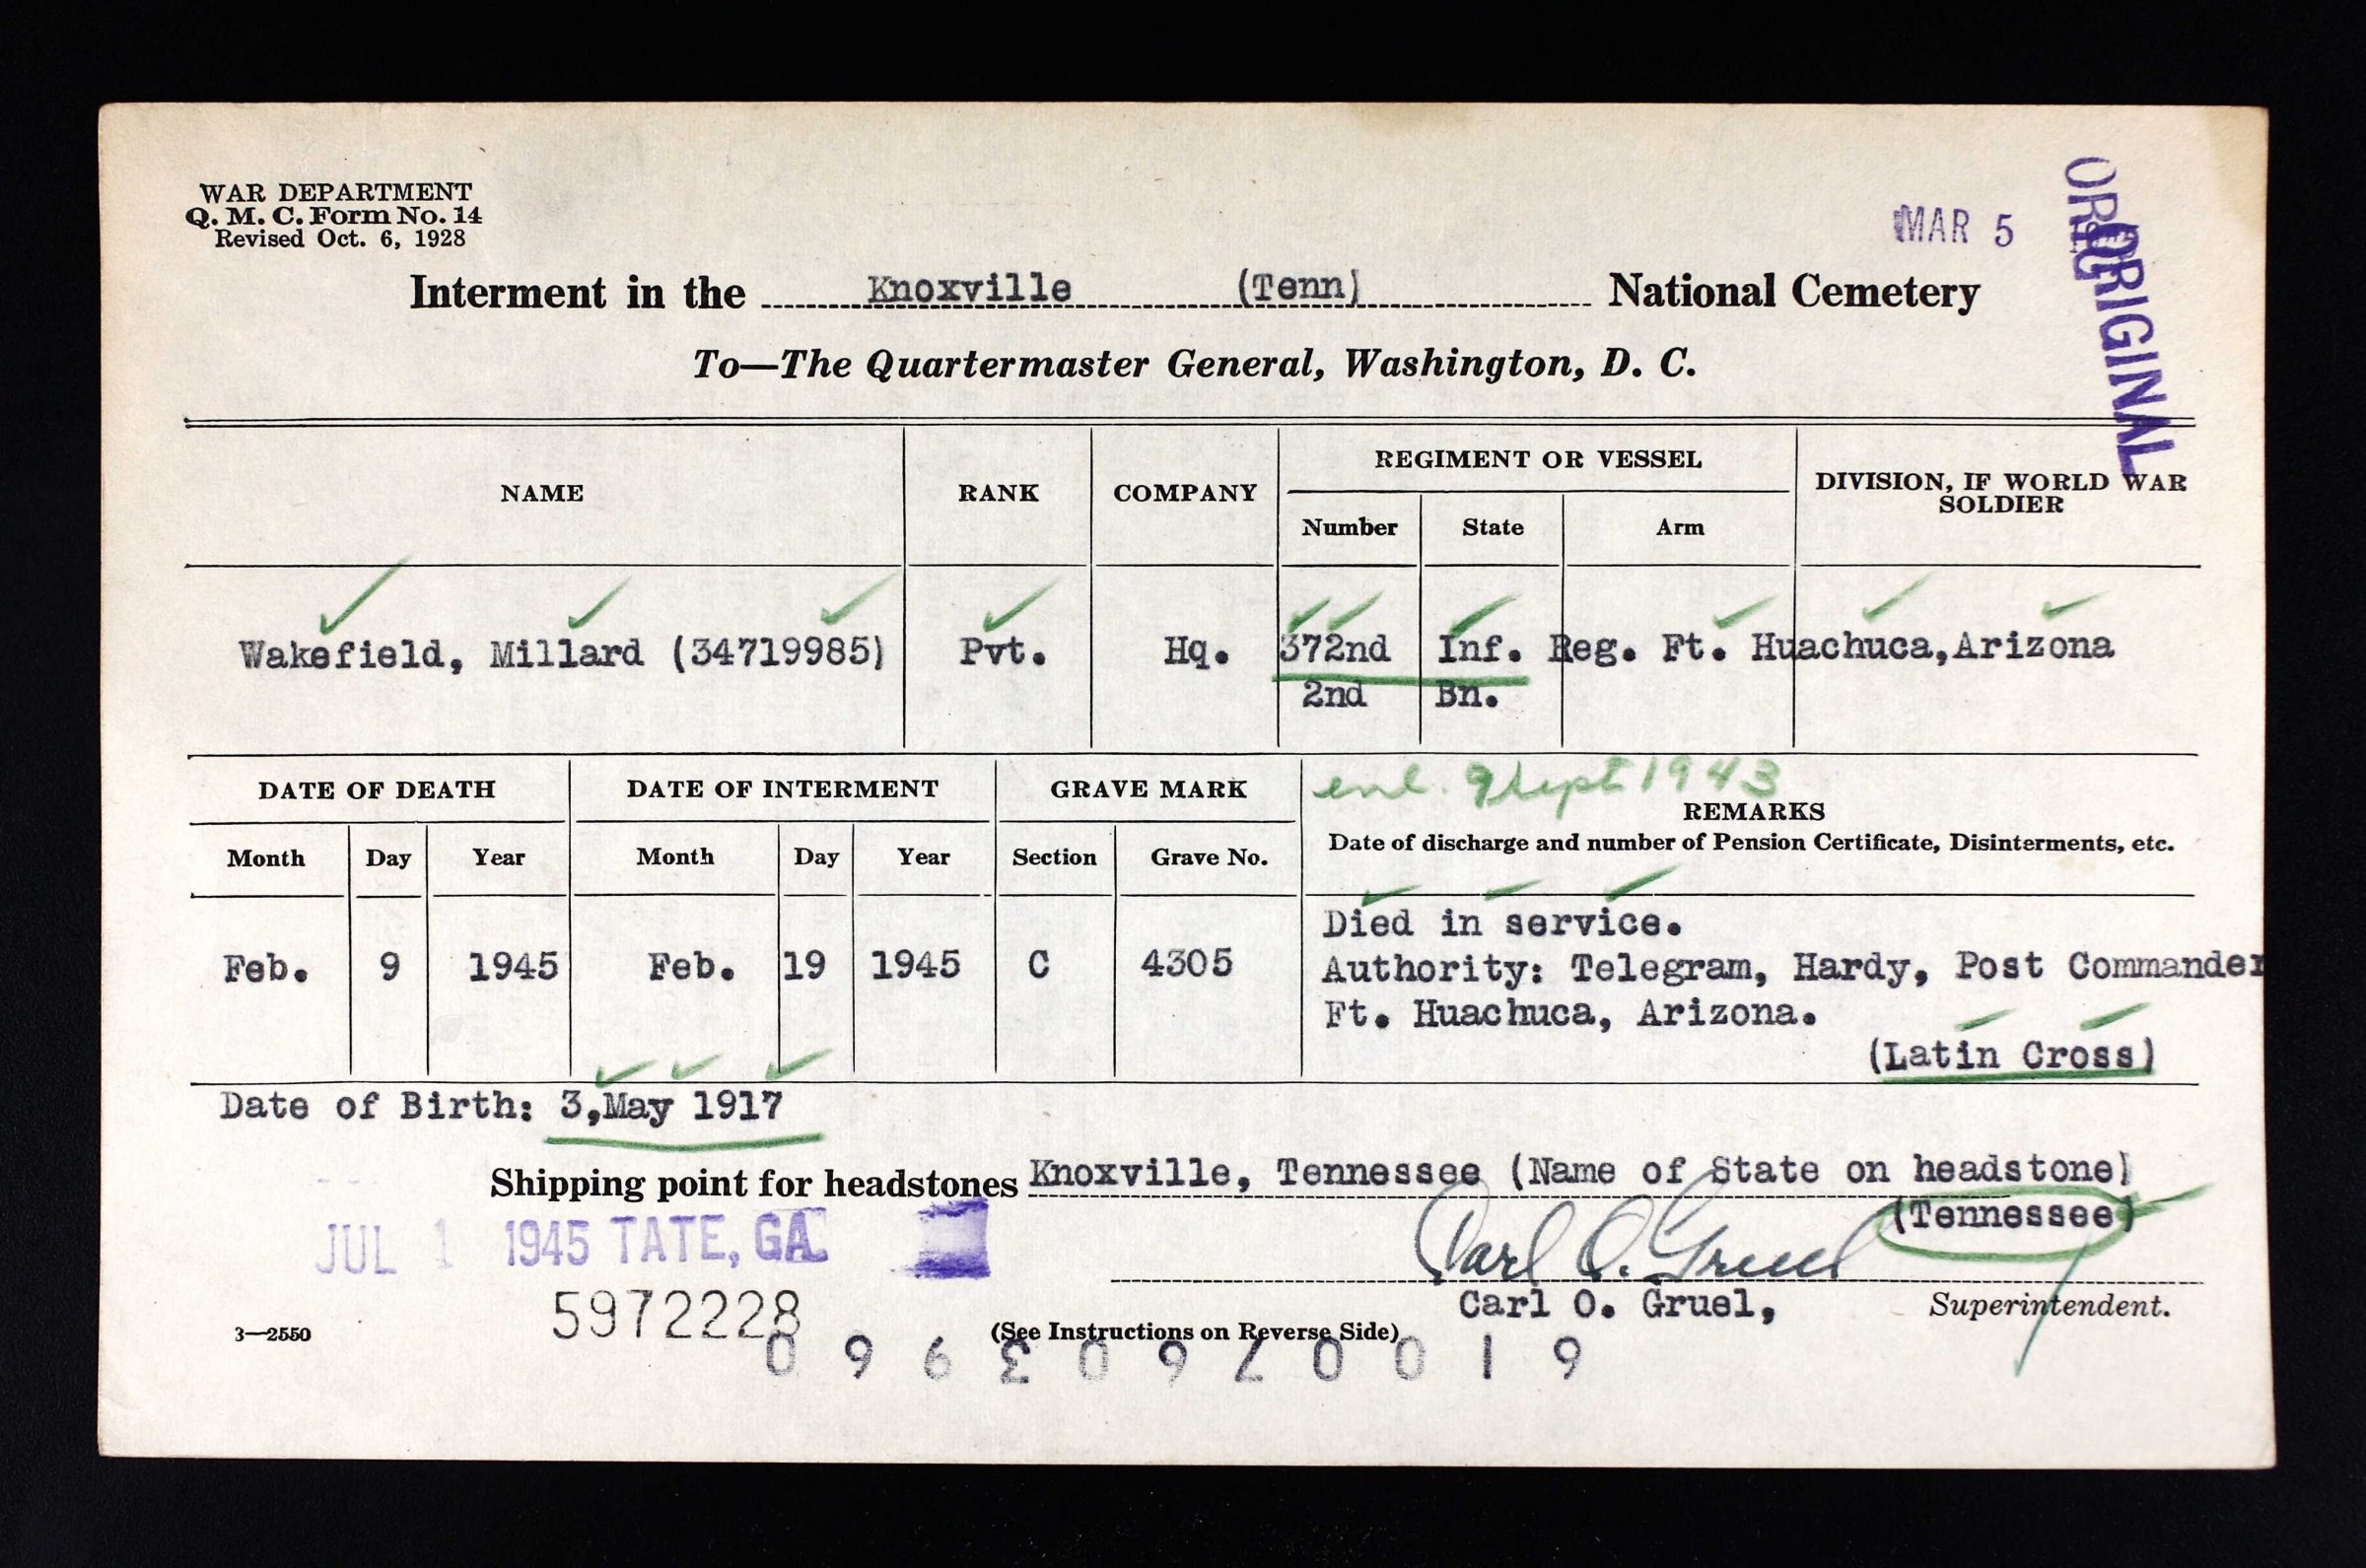 WAR DEPARTMENT
Q. M. C. Form No. 14
Revised Oct. 6, 1928
MAR 5
ORIGINAL
ORIGINAL
Interment in the Knoxville (Tenn) National Cemetery
To—The Quartermaster General, Washington, D. C.
NAME
RANK
COMPANY
REGIMENT OR VESSEL
Number
State
Arm
DIVISION, IF WORLD WAR
SOLDIER
Wakefield, Millard (34719985) Pvt. Hq. 372nd Inf. Reg. Ft. Huachuca, Arizona
2nd Bn.
DATE OF DEATH
DATE OF INTERMENT
GRAVE MARK
enl. 9 Sept 1943
REMARKS
Date of discharge and number of Pension Certificate, Disinterments, etc.
Month Day Year Month Day Year Section Grave No.
Feb. 9 1945 Feb. 19 1945 C 4305
Died in service.
Authority: Telegram, Hardy, Post Commander
Ft. Huachuca, Arizona.
(Latin Cross)
Date of Birth: 3,May 1917
Shipping point for headstones Knoxville, Tennessee (Name of State on headstone)
(Tennessee)
JUL 1 1945 TATE, GA.
Carl O. Gruel
Carl O. Gruel, Superintendent.
5972228
3—2550
(See Instructions on Reverse Side)